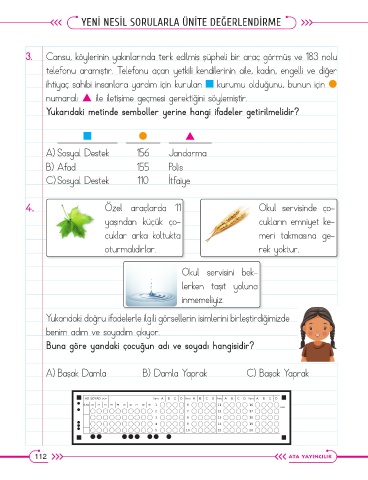 YENİ NESİL SORULARLA ÜNİTE DEĞERLENDİRME
3. Cansu, köylerinin yakınlarında terk edilmiş şüpheli bir araç görmüş ve 183 nolu
telefonu aramıştır. Telefonu açan yetkili kendilerinin aile, kadın, engelli ve diğer
ihtiyaç sahibi insanlara yardım için kurulan ■ kurumu olduğunu, bunun için ●
numaralı ▲ ile iletişime geçmesi gerektiğini söylemiştir.
Yukarıdaki metinde semboller yerine hangi ifadeler getirilmelidir?
■ ● ▲
A) Sosyal Destek 156 Jandarma
B) Afad 155 Polis
C) Sosyal Destek 110 İtfaiye
4.
Özel araçlarda 11
yaşından küçük ço-
cuklar arka koltukta
oturmalıdırlar.
Okul servisinde ço-
cukların emniyet ke-
meri takmasına ge-
rek yoktur.
Okul servisini bek-
lerken taşıt yoluna
inmemeliyiz.
Yukarıdaki doğru ifadelerle ilgili görsellerin isimlerini birleştirdiğimizde
benim adım ve soyadım çıkıyor.
Buna göre yandaki çocuğun adı ve soyadı hangisidir?
A) Başak Damla B) Damla Yaprak C) Başak Yaprak
112
ATA YAYINCILIK